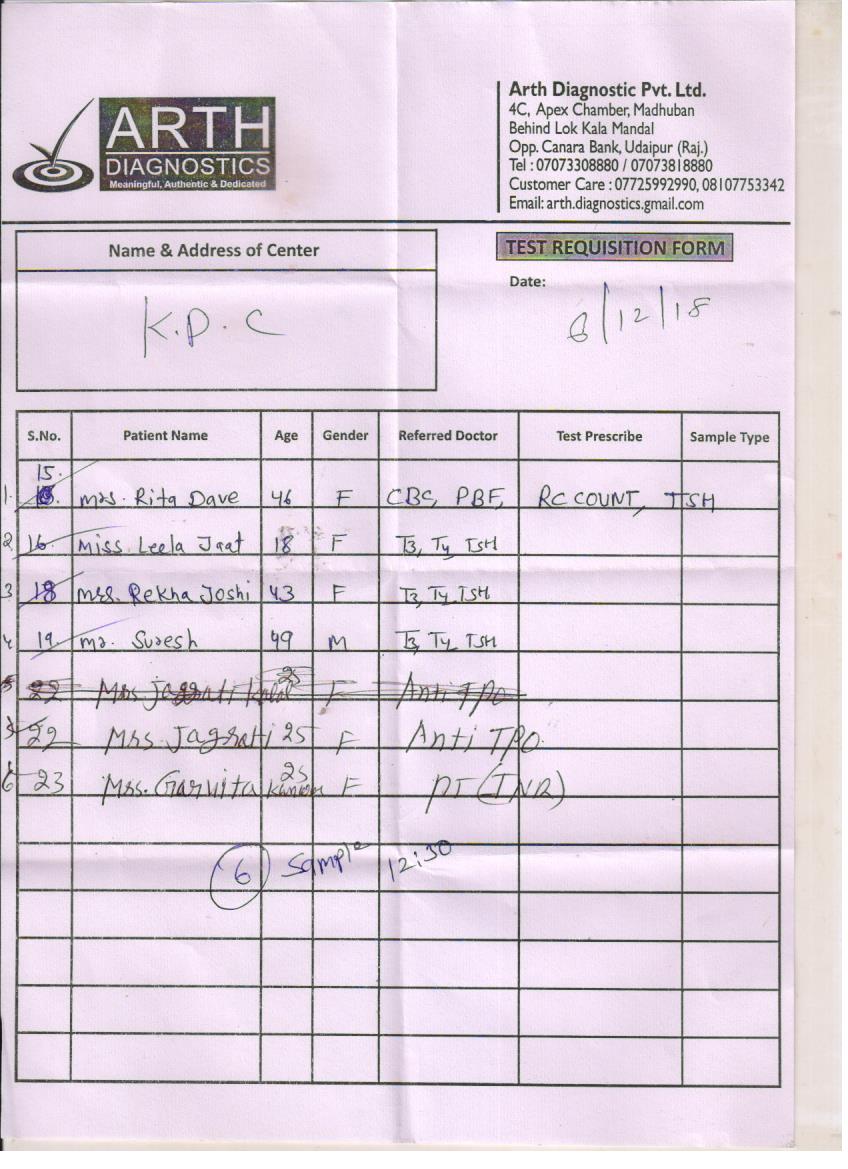 ARTH
DIAGNOSTICS
Meaningful, Authentic & Dedicated
Arth Diagnostic Pvt. Ltd.
4C, Apex Chamber, Madhuban
Behind Lok Kala Mandal
Opp. Canara Bank, Udaipur (Raj.)
Tel : 07073308880 / 07073818880
Customer Care : 07725992990, 08107753342
Email: arth.diagnostics.gmail.com
Name & Address of Center
TEST REQUISITION FORM
Date:
K.P.C
6/12/18
S.No. Patient Name Age Gender Referred Doctor Test Prescribe Sample Type
15.
1. Mrs. Rita Dave 46 F CBC, PBF, RC COUNT, TSH
2 16. Miss. Leela Jaat 18 F T3, T4 TSH
3 18 Mrs. Rekha Joshi 43 F T3, T4 TSH
4 19. Mr. Suresh 49 M T3, T4 TSH
5 22 Mrs Jagrati Kalal 25 F Anti TPO
5 22 Mrs. Jagrati 25 F Anti TPO.
6 23 Mrs. Garvita 25 F PT (INR)
6 Sample 12:30